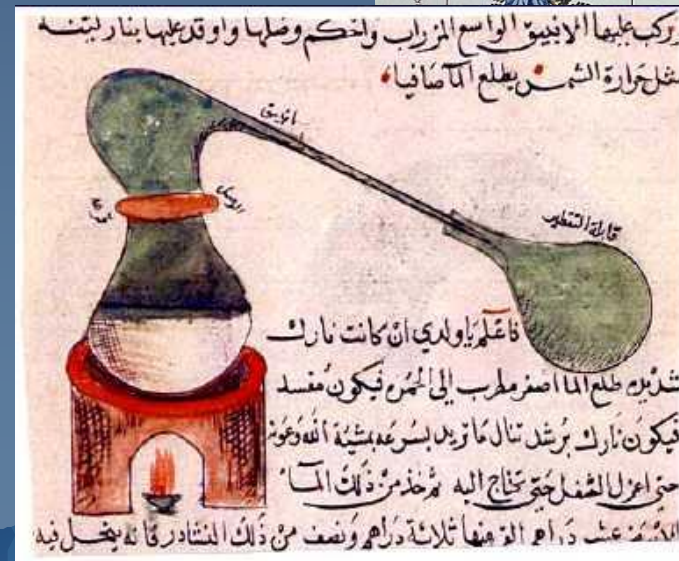 ويركب عليها الانبيق الواسع المزراب واحكم وصلها واوقد عليها بنار لينه
مثل حرارة الشمس يطلع الما صافيا
انبيق
قابلة التقطير
فاعلم يا ولدي ان كانت نارك
شديده طلع الما اصفر مطرب الى الحمره فيكون مفسد
فيكون نارك برشد تنال ما تريد بسرعه بمشيئة الله وعونه
حتى اعزل الثفل حتى تحتاج اليه ثم خذ من ذلك الما
عشر دراهم الق منها ثلاثة دراهم ونصف من ذلك النشادر فانه ينحل فيه